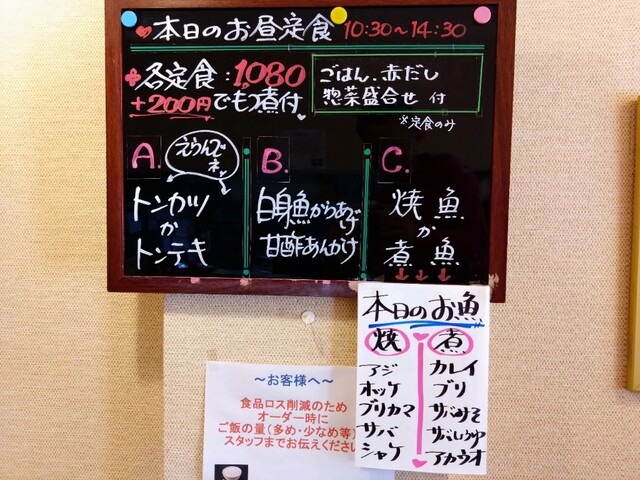 本日のお昼定食 10:30〜14:30
各定食:1,080
+200円でもつ煮付
ごはん、赤だし
惣菜盛合せ 付
※定食のみ
A.
えらんでネッ
トンカツ
か
トンテキ
B.
白身魚からあげ
甘酢あんかけ
C.
焼 魚
か
煮 魚
本日のお魚
焼
アジ
ホッケ
ブリカマ
サバ
シャケ
煮
カレイ
ブリ
サバみそ
サバしょうゆ
アカウオ
〜お客様へ〜
食品ロス削減のため
オーダー時に
ご飯の量(多め・少なめ等)
スタッフまでお伝えください